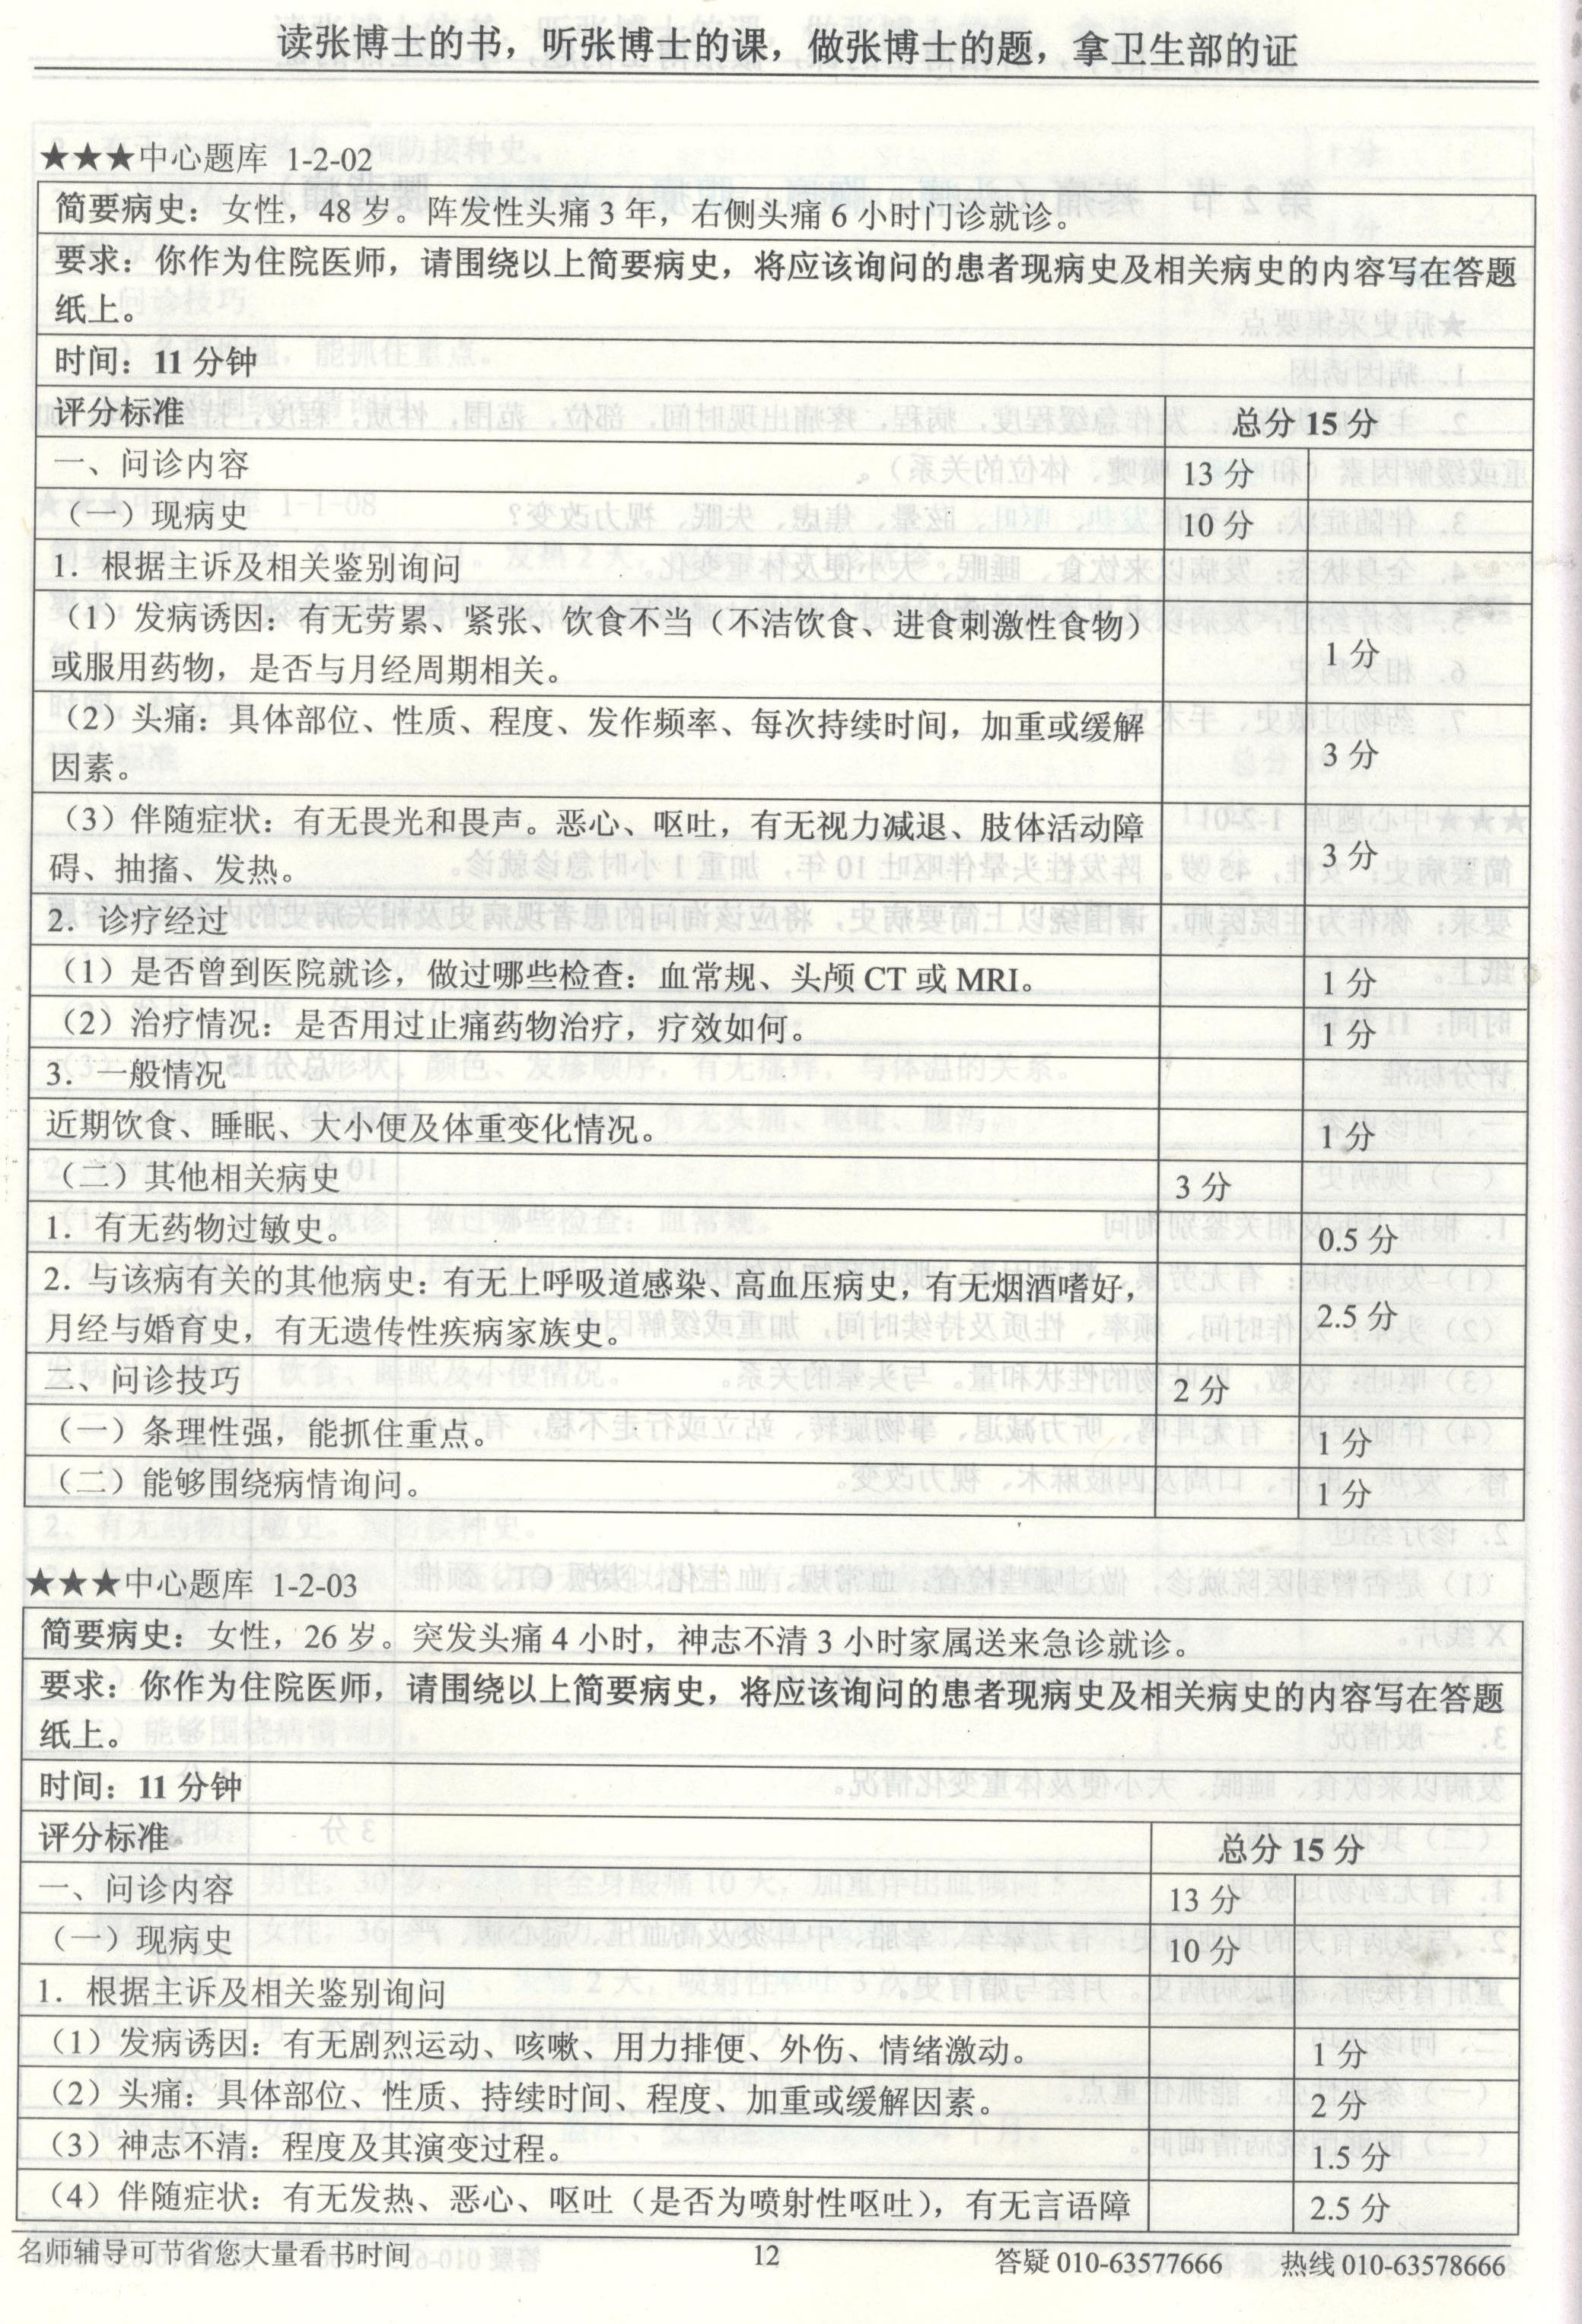 读张博士的书，听张博士的课，做张博士的题，拿卫生部的证
★★★中心题库 1-2-02
简要病史：女性，48 岁。阵发性头痛 3 年，右侧头痛 6 小时门诊就诊。
要求：你作为住院医师，请围绕以上简要病史，将应该询问的患者现病史及相关病史的内容写在答题
纸上。
时间：11 分钟
评分标准 总分 15 分
一、问诊内容 13 分
（一）现病史 10 分
1．根据主诉及相关鉴别询问
（1）发病诱因：有无劳累、紧张、饮食不当（不洁饮食、进食刺激性食物）
或服用药物，是否与月经周期相关。 1 分
（2）头痛：具体部位、性质、程度、发作频率、每次持续时间，加重或缓解
因素。 3 分
（3）伴随症状：有无畏光和畏声。恶心、呕吐，有无视力减退、肢体活动障
碍、抽搐、发热。 3 分
2．诊疗经过
（1）是否曾到医院就诊，做过哪些检查：血常规、头颅 CT 或 MRI。 1 分
（2）治疗情况：是否用过止痛药物治疗，疗效如何。 1 分
3．一般情况
近期饮食、睡眠、大小便及体重变化情况。 1 分
（二）其他相关病史 3 分
1．有无药物过敏史。 0.5 分
2．与该病有关的其他病史：有无上呼吸道感染、高血压病史，有无烟酒嗜好，
月经与婚育史，有无遗传性疾病家族史。 2.5 分
二、问诊技巧 2 分
（一）条理性强，能抓住重点。 1 分
（二）能够围绕病情询问。 1 分
★★★中心题库 1-2-03
简要病史：女性，26 岁。突发头痛 4 小时，神志不清 3 小时家属送来急诊就诊。
要求：你作为住院医师，请围绕以上简要病史，将应该询问的患者现病史及相关病史的内容写在答题
纸上。
时间：11 分钟
评分标准 总分 15 分
一、问诊内容 13 分
（一）现病史 10 分
1．根据主诉及相关鉴别询问
（1）发病诱因：有无剧烈运动、咳嗽、用力排便、外伤、情绪激动。 1 分
（2）头痛：具体部位、性质、持续时间、程度、加重或缓解因素。 2 分
（3）神志不清：程度及其演变过程。 1.5 分
（4）伴随症状：有无发热、恶心、呕吐（是否为喷射性呕吐），有无言语障 2.5 分
名师辅导可节省您大量看书时间 12 答疑 010-63577666 热线 010-63578666